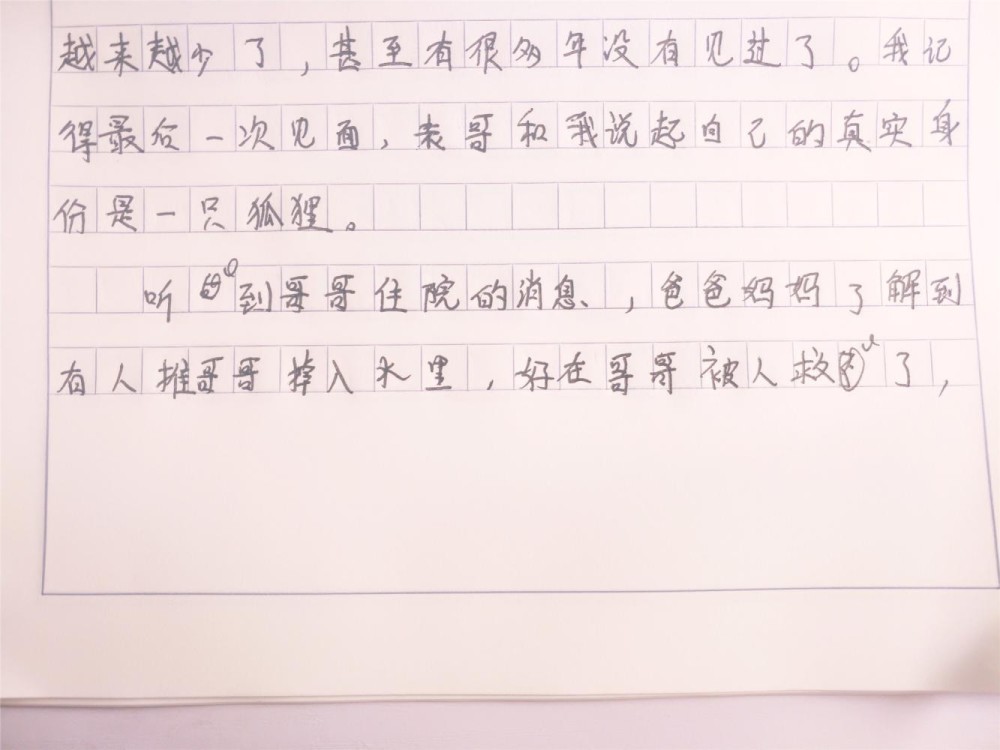 越来越少了，甚至有很多年没有见过了。我记
得最后一次见面，表哥和我说起自己的真实身
份是一只狐狸。
听到哥哥住院的消息，爸爸妈妈了解到
有人推哥哥掉入水里，好在哥哥被人救了，